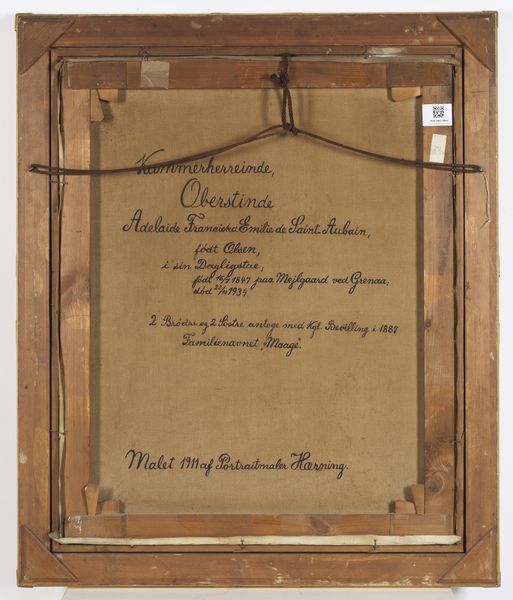 Kammerherreinde,
Oberstinde
Adelaide Franciska Emilie de Saint Aubain,
født Olsen,
i sin Dagligstue,
født 16/7 1847 paa Mejlgaard ved Grenaa,
død 23/10 1934
2 Brödre og 2 Söstre antoge med Kgl. Bevilling i 1887
Familienavnet "Maage".
Malet 1911 af Portraitmaler Hærning.